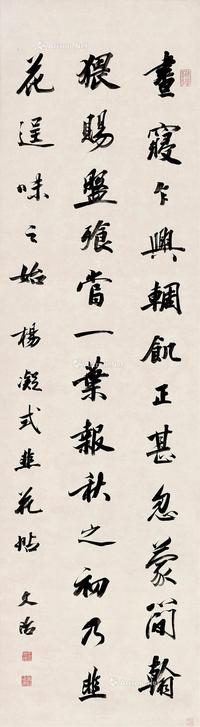 晝寢乍興輖飢正甚忽蒙簡翰
猥賜盤飧當一葉報秋之初乃韭
花逞味之始 楊凝式韭花帖 文治